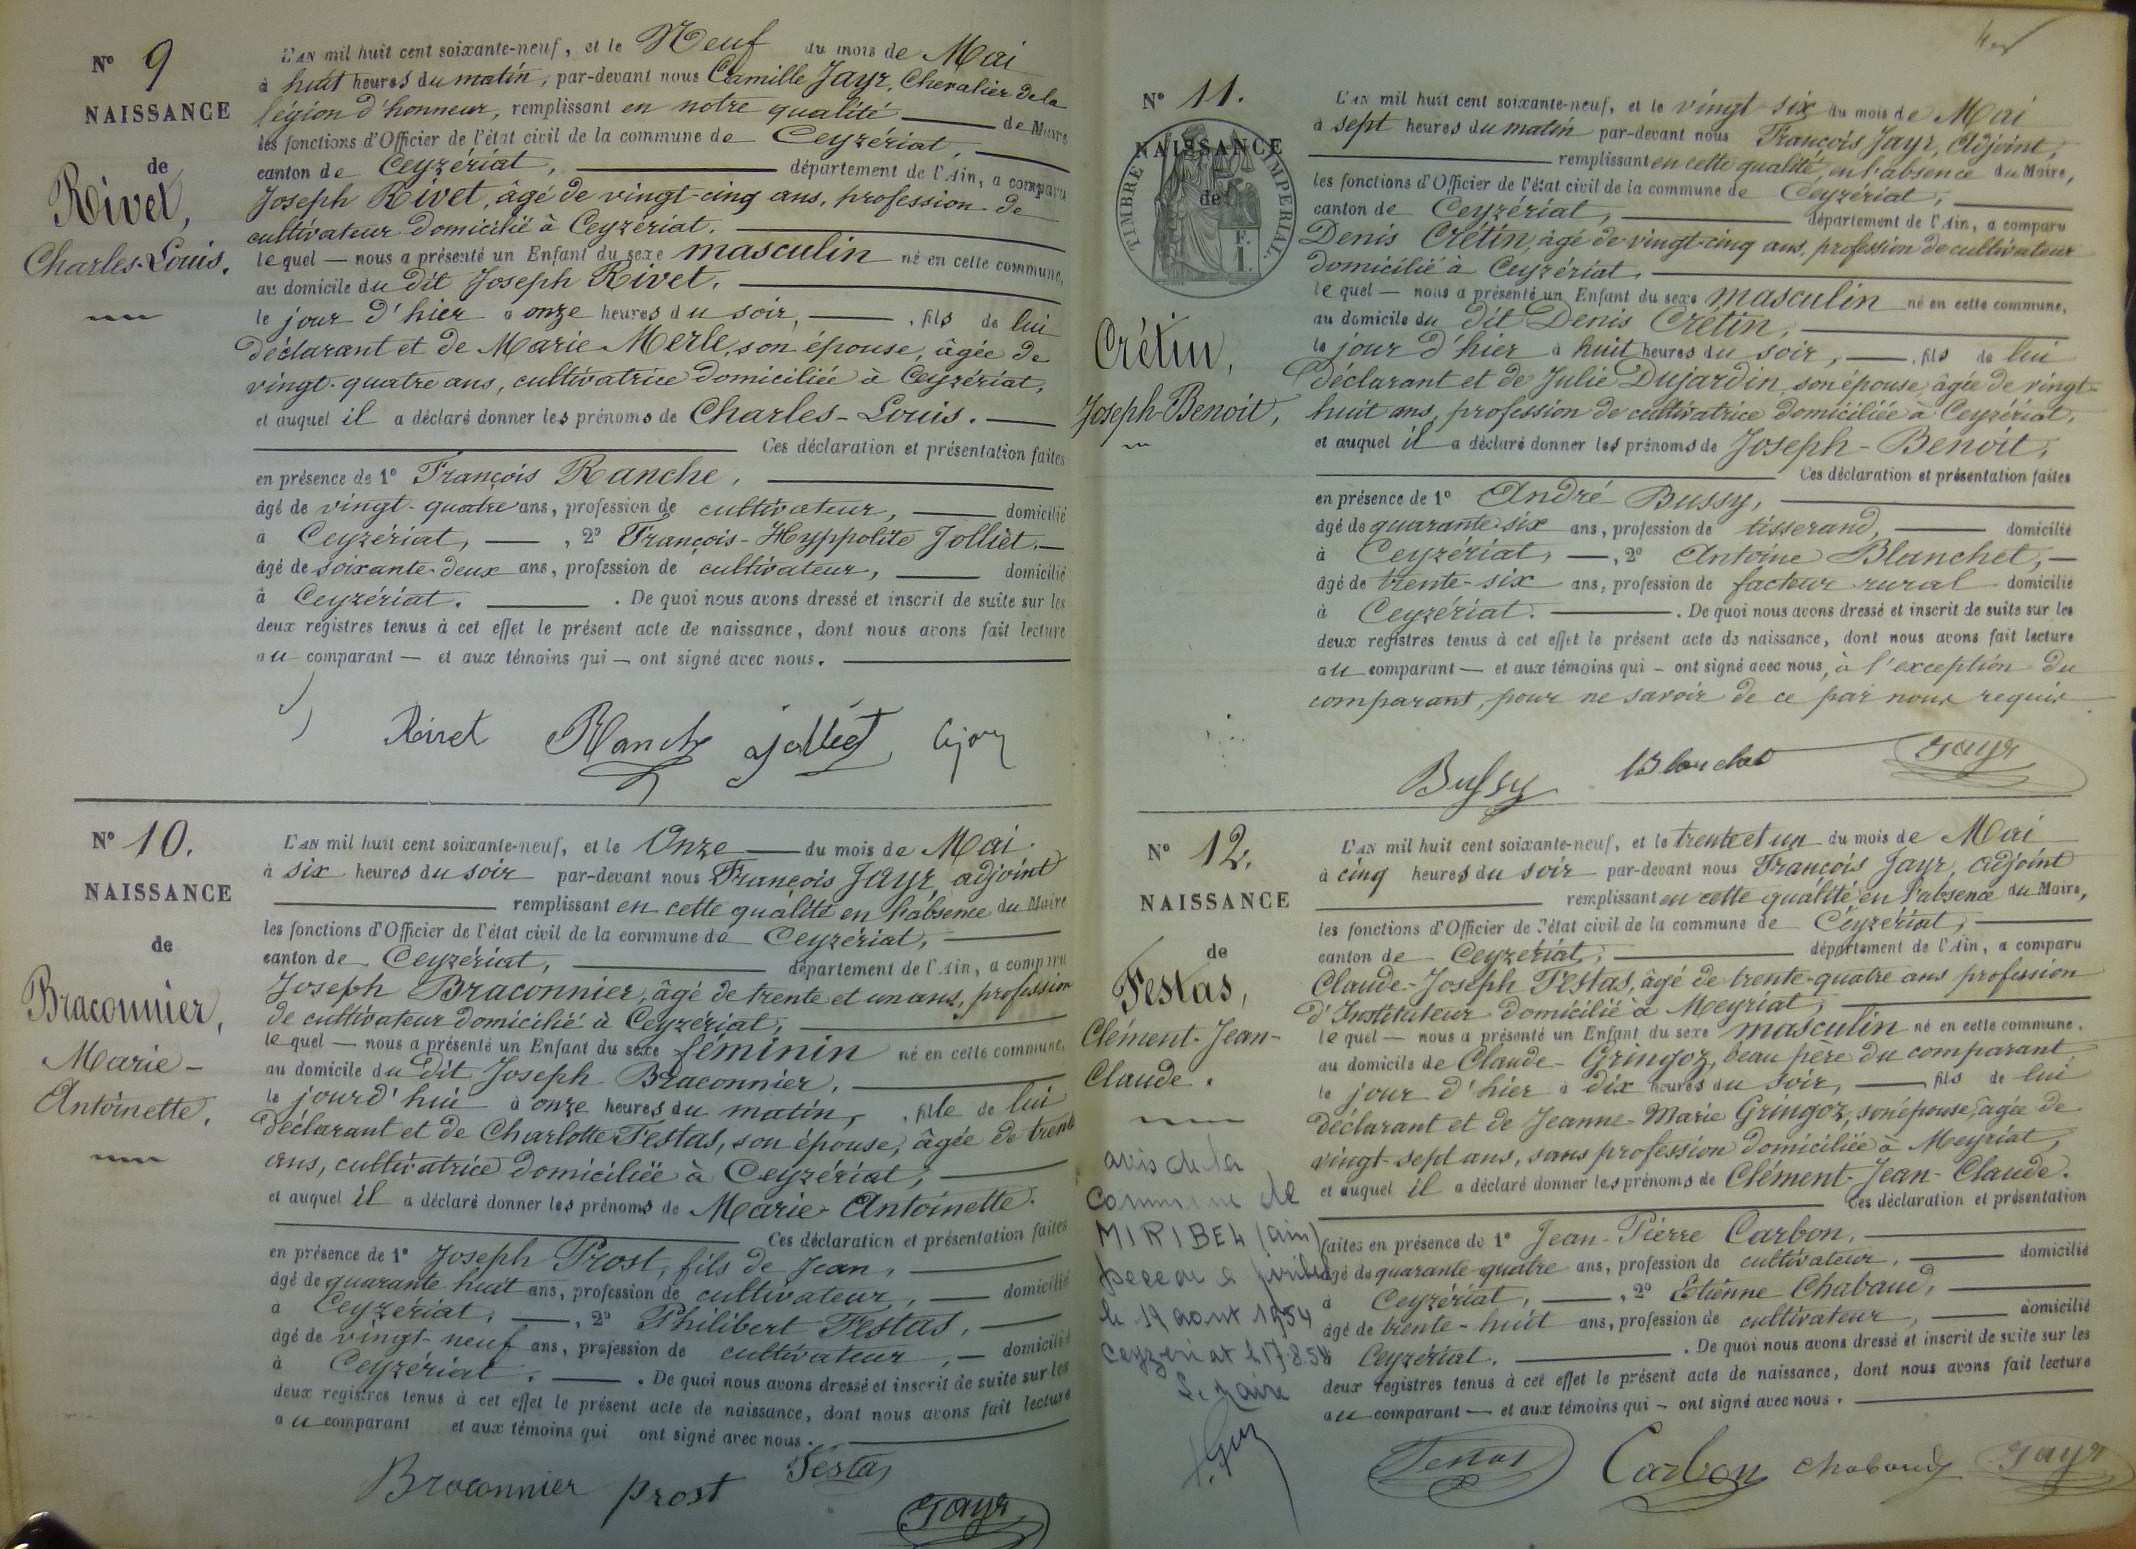 N° 9
NAISSANCE
de
Rivet,
Charles-Louis.
L'AN mil huit cent soixante-neuf, et le Neuf du mois de Mai
à huit heures du matin, par-devant nous Camille Jayr, Chevalier de la
légion d'honneur, remplissant en notre qualité de Maire
les fonctions d'Officier de l'état civil de la commune de Ceyzériat,
canton de Ceyzériat, département de l'Ain, a comparu
Joseph Rivet, âgé de vingt-cinq ans, profession de
cultivateur domicilié à Ceyzériat.
lequel — nous a présenté un Enfant du sexe masculin né en cette commune,
au domicile du dit Joseph Rivet,
le jour d'hier à onze heures du soir, fils de lui
déclarant et de Marie Merle, son épouse, âgée de
vingt-quatre ans, cultivatrice domiciliée à Ceyzériat,
et auquel il a déclaré donner les prénoms de Charles-Louis.
Ces déclaration et présentation faites
en présence de 1° François Ranche,
âgé de vingt-quatre ans, profession de cultivateur, domicilié
à Ceyzériat, — , 2° François-Hyppolite Jolliet,
âgé de soixante-deux ans, profession de cultivateur, domicilié
à Ceyzériat. . De quoi nous avons dressé et inscrit de suite sur les
deux registres tenus à cet effet le présent acte de naissance, dont nous avons fait lecture
au comparant — et aux témoins qui — ont signé avec nous.
Rivet Ranche Jolliet
N° 10.
NAISSANCE
de
Braconnier,
Marie-
Antoinette.
L'AN mil huit cent soixante-neuf, et le Onze du mois de Mai
à six heures du soir par-devant nous François Jayr, adjoint
remplissant en cette qualité en l'absence du Maire
les fonctions d'Officier de l'état civil de la commune de Ceyzériat,
canton de Ceyzériat, département de l'Ain, a comparu
Joseph Braconnier, âgé de trente et un ans, profession
de cultivateur domicilié à Ceyzériat,
lequel — nous a présenté un Enfant du sexe féminin né en cette commune,
au domicile du dit Joseph Braconnier,
le jourd'hui à onze heures du matin, fille de lui
déclarant et de Charlotte Festas, son épouse, âgée de trente
ans, cultivatrice domiciliée à Ceyzériat,
et auquel il a déclaré donner les prénoms de Marie-Antoinette.
Ces déclaration et présentation faites
en présence de 1° Joseph Prost, fils de Jean,
âgé de quarante-huit ans, profession de cultivateur, domicilié
à Ceyzériat, — , 2° Philibert Festas,
âgé de vingt-neuf ans, profession de cultivateur, domicilié
à Ceyzériat. . De quoi nous avons dressé et inscrit de suite sur les
deux registres tenus à cet effet le présent acte de naissance, dont nous avons fait lecture
au comparant et aux témoins qui ont signé avec nous.
Braconnier Prost Festas
Jayr
N° 11.
NAISSANCE
de
TIMBRE IMPÉRIAL.
F.
1.
Crétin,
Joseph-Benoit,
L'AN mil huit cent soixante-neuf, et le vingt-six du mois de Mai
à sept heures du matin par-devant nous François Jayr, Adjoint,
remplissant en cette qualité, en l'absence du Maire,
les fonctions d'Officier de l'état civil de la commune de Ceyzériat,
canton de Ceyzériat, département de l'Ain, a comparu
Denis Crétin, âgé de vingt-cinq ans, profession de cultivateur
domicilié à Ceyzériat,
lequel — nous a présenté un Enfant du sexe masculin né en cette commune,
au domicile du dit Denis Crétin,
le jour d'hier à huit heures du soir, fils de lui
déclarant et de Julie Dujardin, son épouse, âgée de vingt-
huit ans, profession de cultivatrice domiciliée à Ceyzériat,
et auquel il a déclaré donner les prénoms de Joseph-Benoit,
Ces déclaration et présentation faites
en présence de 1° André Bussy,
âgé de quarante-six ans, profession de tisserand, domicilié
à Ceyzériat, — , 2° Antoine Blanchet,
âgé de trente-six ans, profession de facteur rural domicilié
à Ceyzériat. . De quoi nous avons dressé et inscrit de suite sur les
deux registres tenus à cet effet le présent acte de naissance, dont nous avons fait lecture
au comparant — et aux témoins qui — ont signé avec nous, à l'exception du
comparant, pour ne savoir de ce par nous requis
Bussy Blanchet Jayr
N° 12.
NAISSANCE
de
Festas,
Clément-Jean-
Claude.
avis de la
commune de
MIRIBEL (ain)
le 19 aout 1954
Ceyzériat
Le Maire
L'AN mil huit cent soixante-neuf, et le trente et un du mois de Mai
à cinq heures du soir par-devant nous François Jayr, adjoint
remplissant en cette qualité en l'absence du Maire,
les fonctions d'Officier de l'état civil de la commune de Ceyzériat,
canton de Ceyzériat, département de l'Ain, a comparu
Claude-Joseph Festas, âgé de trente-quatre ans profession
d'Instituteur domicilié à Meyriat,
lequel — nous a présenté un Enfant du sexe masculin né en cette commune,
au domicile de Claude Gringoz, beau père du comparant
le jour d'hier à dix heures du soir, fils de lui
déclarant et de Jeanne-Marie Gringoz, son épouse, âgée de
vingt-sept ans, sans profession domiciliée à Meyriat,
et auquel il a déclaré donner les prénoms de Clément-Jean-Claude.
Ces déclaration et présentation
faites en présence de 1° Jean-Pierre Carbon,
âgé de quarante-quatre ans, profession de cultivateur, domicilié
à Ceyzériat, — , 2° Etienne Chabaud,
âgé de trente-huit ans, profession de cultivateur, domicilié
à Ceyzériat. . De quoi nous avons dressé et inscrit de suite sur les
deux registres tenus à cet effet le présent acte de naissance, dont nous avons fait lecture
au comparant — et aux témoins qui — ont signé avec nous.
Festas Carbon Chabaud Jayr